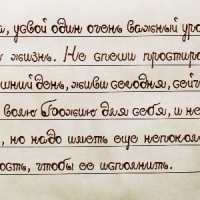 , усвой один очень важный уро
жизнь. Не спеши простира
шний день, живи сегодня, сей
волю Божию для себя, и не
, но надо иметь еще непоко
ость, чтобы ее исполнить.